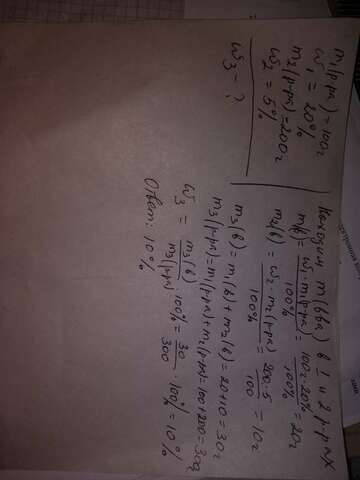 m₁(р-ра) = 100г
ω₁ = 20%
m₂(р-ра) = 200г
ω₂ = 5%
ω₃ - ?
Находим m(вва) в 1 и 2 р-рах
m(в) = ω₁ · m₁(р-ра) / 100% = 100г · 20% / 100% = 20г
m₂(в) = ω₂ · m₂(р-ра) / 100% = 200 · 5 / 100 = 10г
m₃(в) = m₁(в) + m₂(в) = 20 + 10 = 30г
m₃(р-ра) = m₁(р-ра) + m₂(р-ра) = 100 + 200 = 300г
ω₃ = m₃(в) / m₃(р-ра) · 100% = 30 / 300 · 100% = 10%
Ответ: 10%